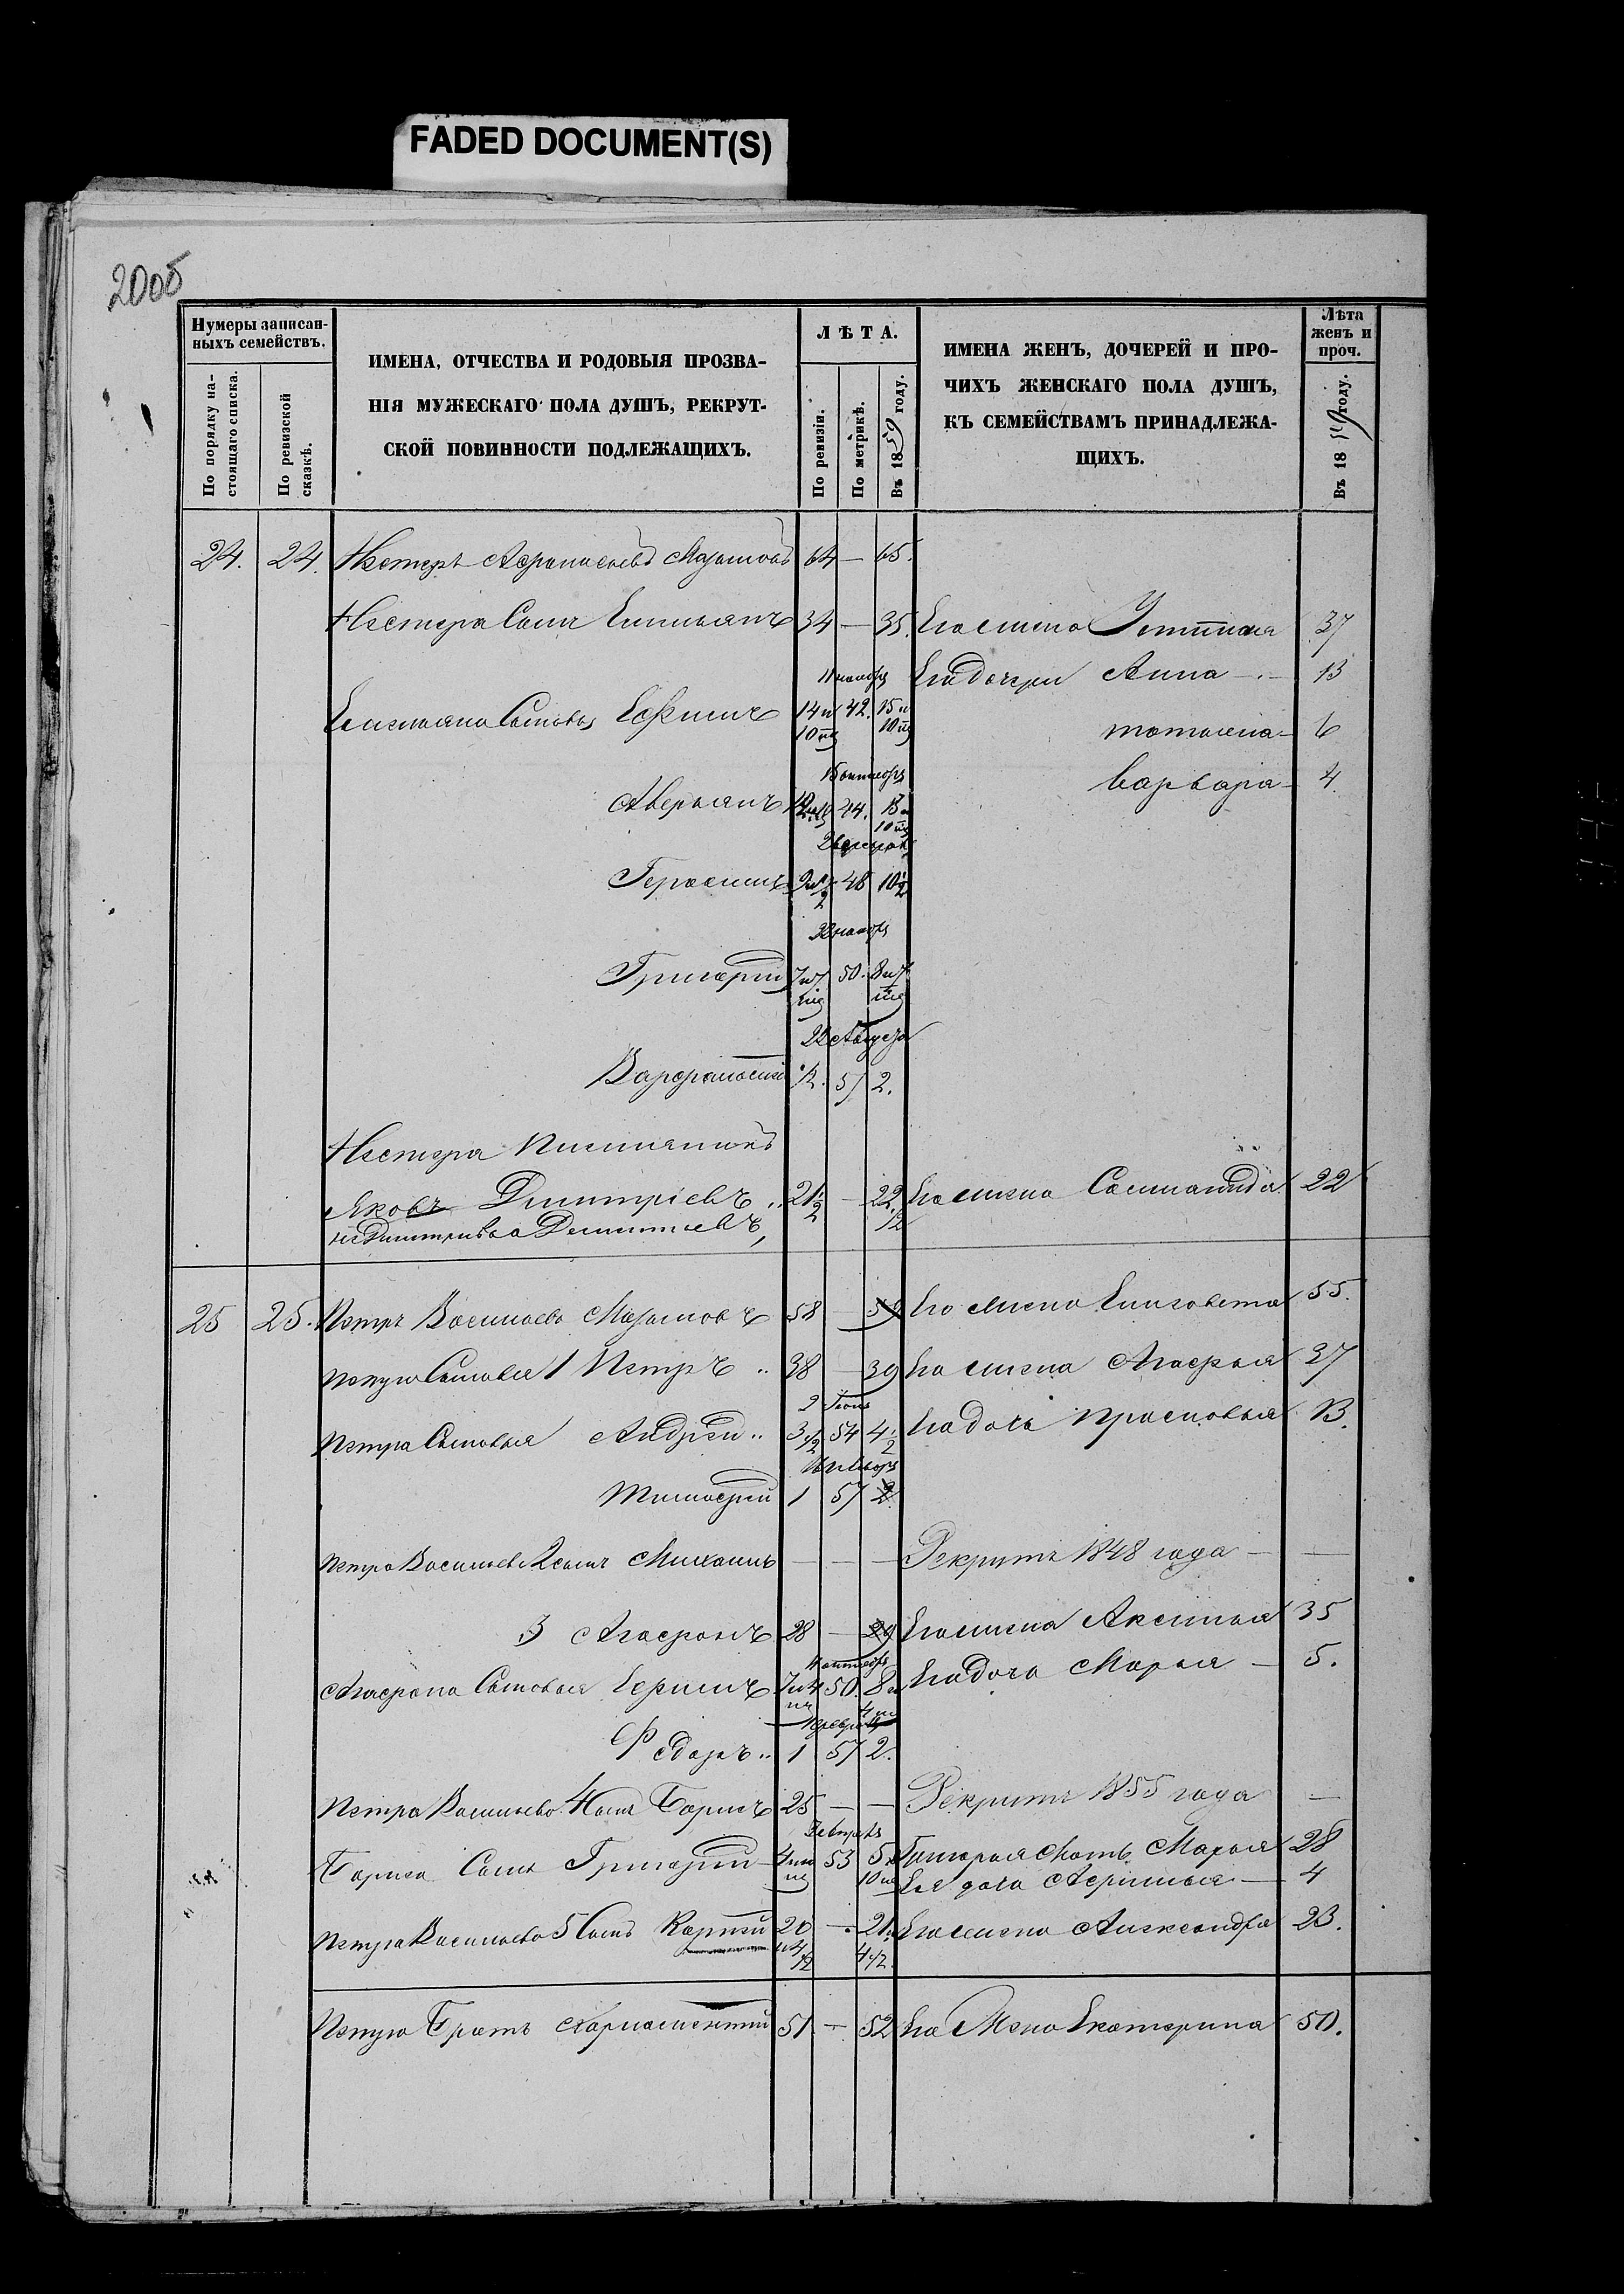 FADED DOCUMENT(S)
200б
Нумеры записан-
ныхъ семействъ.
По порядку на-
стоящаго списка.
По ревизской
сказкѣ.
ИМЕНА, ОТЧЕСТВА И РОДОВЫЯ ПРОЗВА-
НІЯ МУЖЕСКАГО ПОЛА ДУШЪ, РЕКРУТ-
СКОЙ ПОВИННОСТИ ПОДЛЕЖАЩИХЪ.
ЛѢТА.
По ревизіи.
По метрикѣ.
Въ 1859 году.
ИМЕНА ЖЕНЪ, ДОЧЕРЕЙ И ПРО-
ЧИХЪ ЖЕНСКАГО ПОЛА ДУШЪ,
КЪ СЕМЕЙСТВАМЪ ПРИНАДЛЕЖА-
ЩИХЪ.
Лѣта
женъ и
проч.
Въ 1859 году.
24. 24. Нестеръ Афанасьевъ 64 — 65.
Нестера Сынъ Емельянъ 34 — 35. Его жена Устинья 37
Его дочери Анна 13
Емельяна Сыновья Ефимъ 14 и 42. 15 и
10 мц 10 мц
Татьяна 6
Варвара 4.
Аверьянъ 44.
10 мц
Герасимъ 48 10 1/2
Григорій 50.
22 Августа
Варфоломей 57 2.
Нестера Племянникъ
Яковъ Дмитріевъ 21 1/2 — 22 1/2 Его жена Соломанида 22
не Дмитриевъ а Дементьевъ,
25 25. Петръ Васильевъ 58 — 59 Его жена Елизовета 55.
Петра Сыновья 1 Петръ 38 — 39 Его жена Агафья 37
2 Іюня
Петра Сыновья Андрей 3 1/2 54 4 1/2 Его дочь Прасковья 13.
Тимофей 1 57 2
Петра Васильева 2 сынъ Михаилъ — — — Рекрутъ 1848 года — —
3 Агафонъ 28 — 29 Его жена Аксинья 35
Агафона Сыновья Ефимъ 50. Его дочь Марья — 5.
Федоръ 1 57 2.
Петра Васильева 4 сынъ Борисъ 25 — — Рекрутъ 1855 года —
Бориса Сынъ Григорій 53 Григорья Мать Марья 28
10 мц Ея дочь Афимья — 4
Петра Васильева 5 Сынъ Карпъ 20 — 21 Его жена Александра 23.
Петра Братъ Харлампій 51 — 52 Его Жена Екатерина 50.